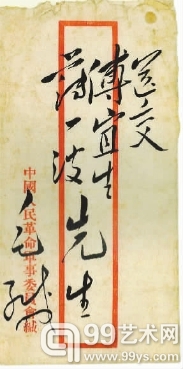 送交
傅宜生
薄一波先生
毛缄
中國人民革命軍事委員會緘
99艺术网
www.99ys.com